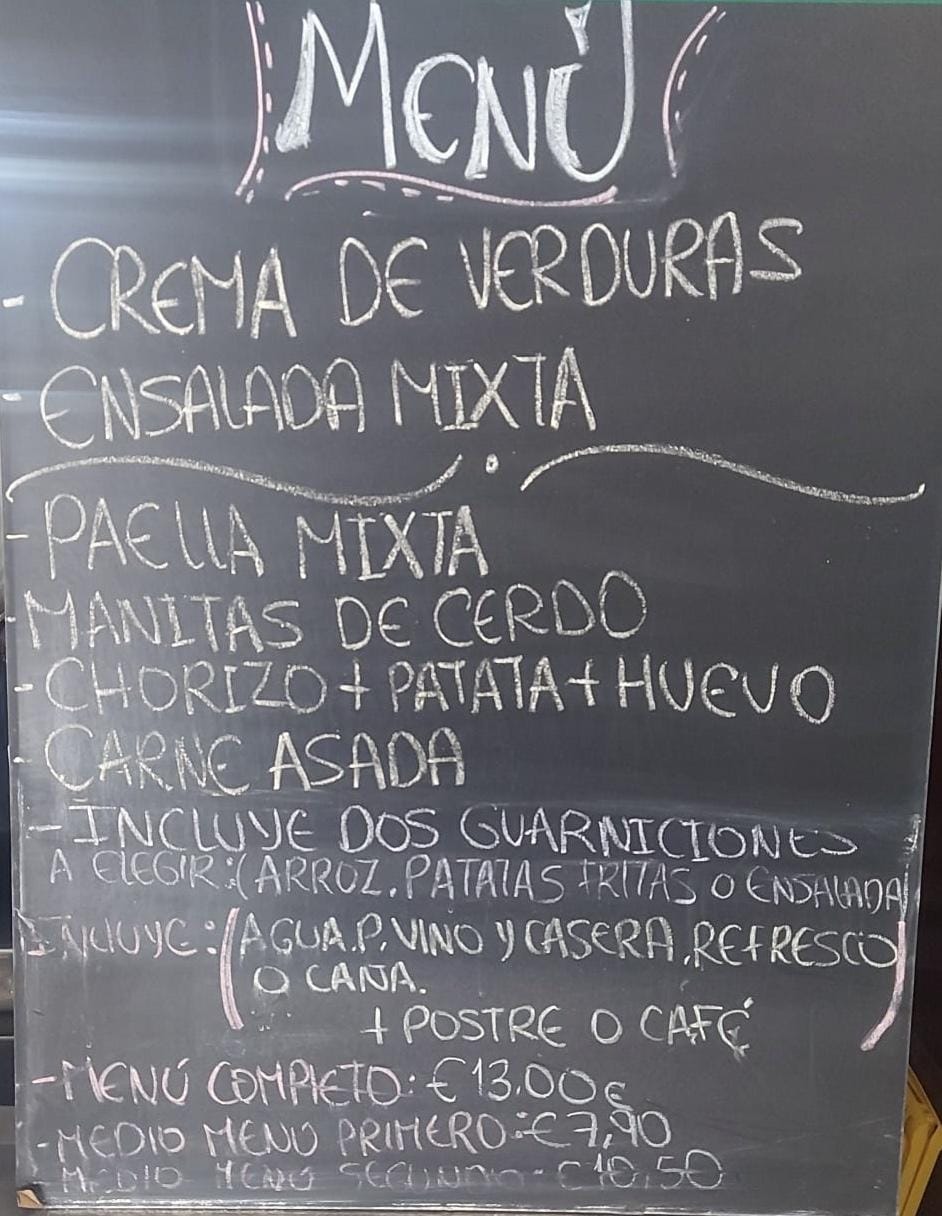 MENÚ
- CREMA DE VERDURAS
- ENSALADA MIXTA
- PAELLA MIXTA
- MANITAS DE CERDO
- CHORIZO + PATATA + HUEVO
- CARNE ASADA
- INCLUYE DOS GUARNICIONES
A ELEGIR:(ARROZ. PATATAS FRITAS O ENSALADA)
INCLUYE:(AGUA.P.VINO Y CASERA.REFRESCO
O CAÑA.
+ POSTRE O CAFÉ)
- MENÚ COMPLETO: €13,00€
- MEDIO MENÚ PRIMERO: €7,90
MEDIO MENÚ SEGUNDO: €10,50